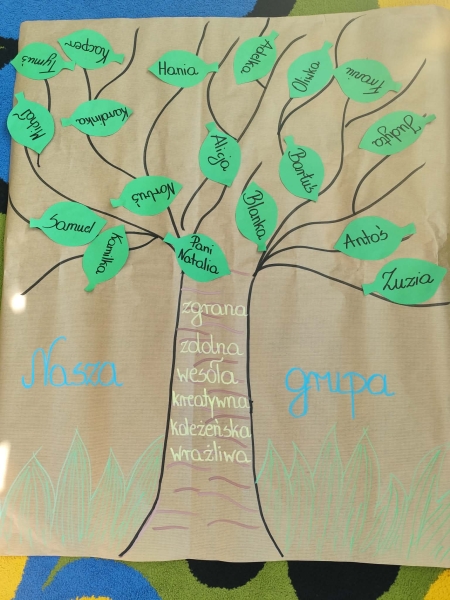 Tymuś
Kacper
Hania
Adelka
Oliwka
Franiu
Michaś
Karolinka
Alicja
Bartuś
Judyta
Norbuś
Samuel
Kamilka
Blanka
Pani
Natalia
Antoś
Zuzia
zgrana
zdolna
wesoła
kreatywna
koleżeńska
wrażliwa
Nasza
grupa